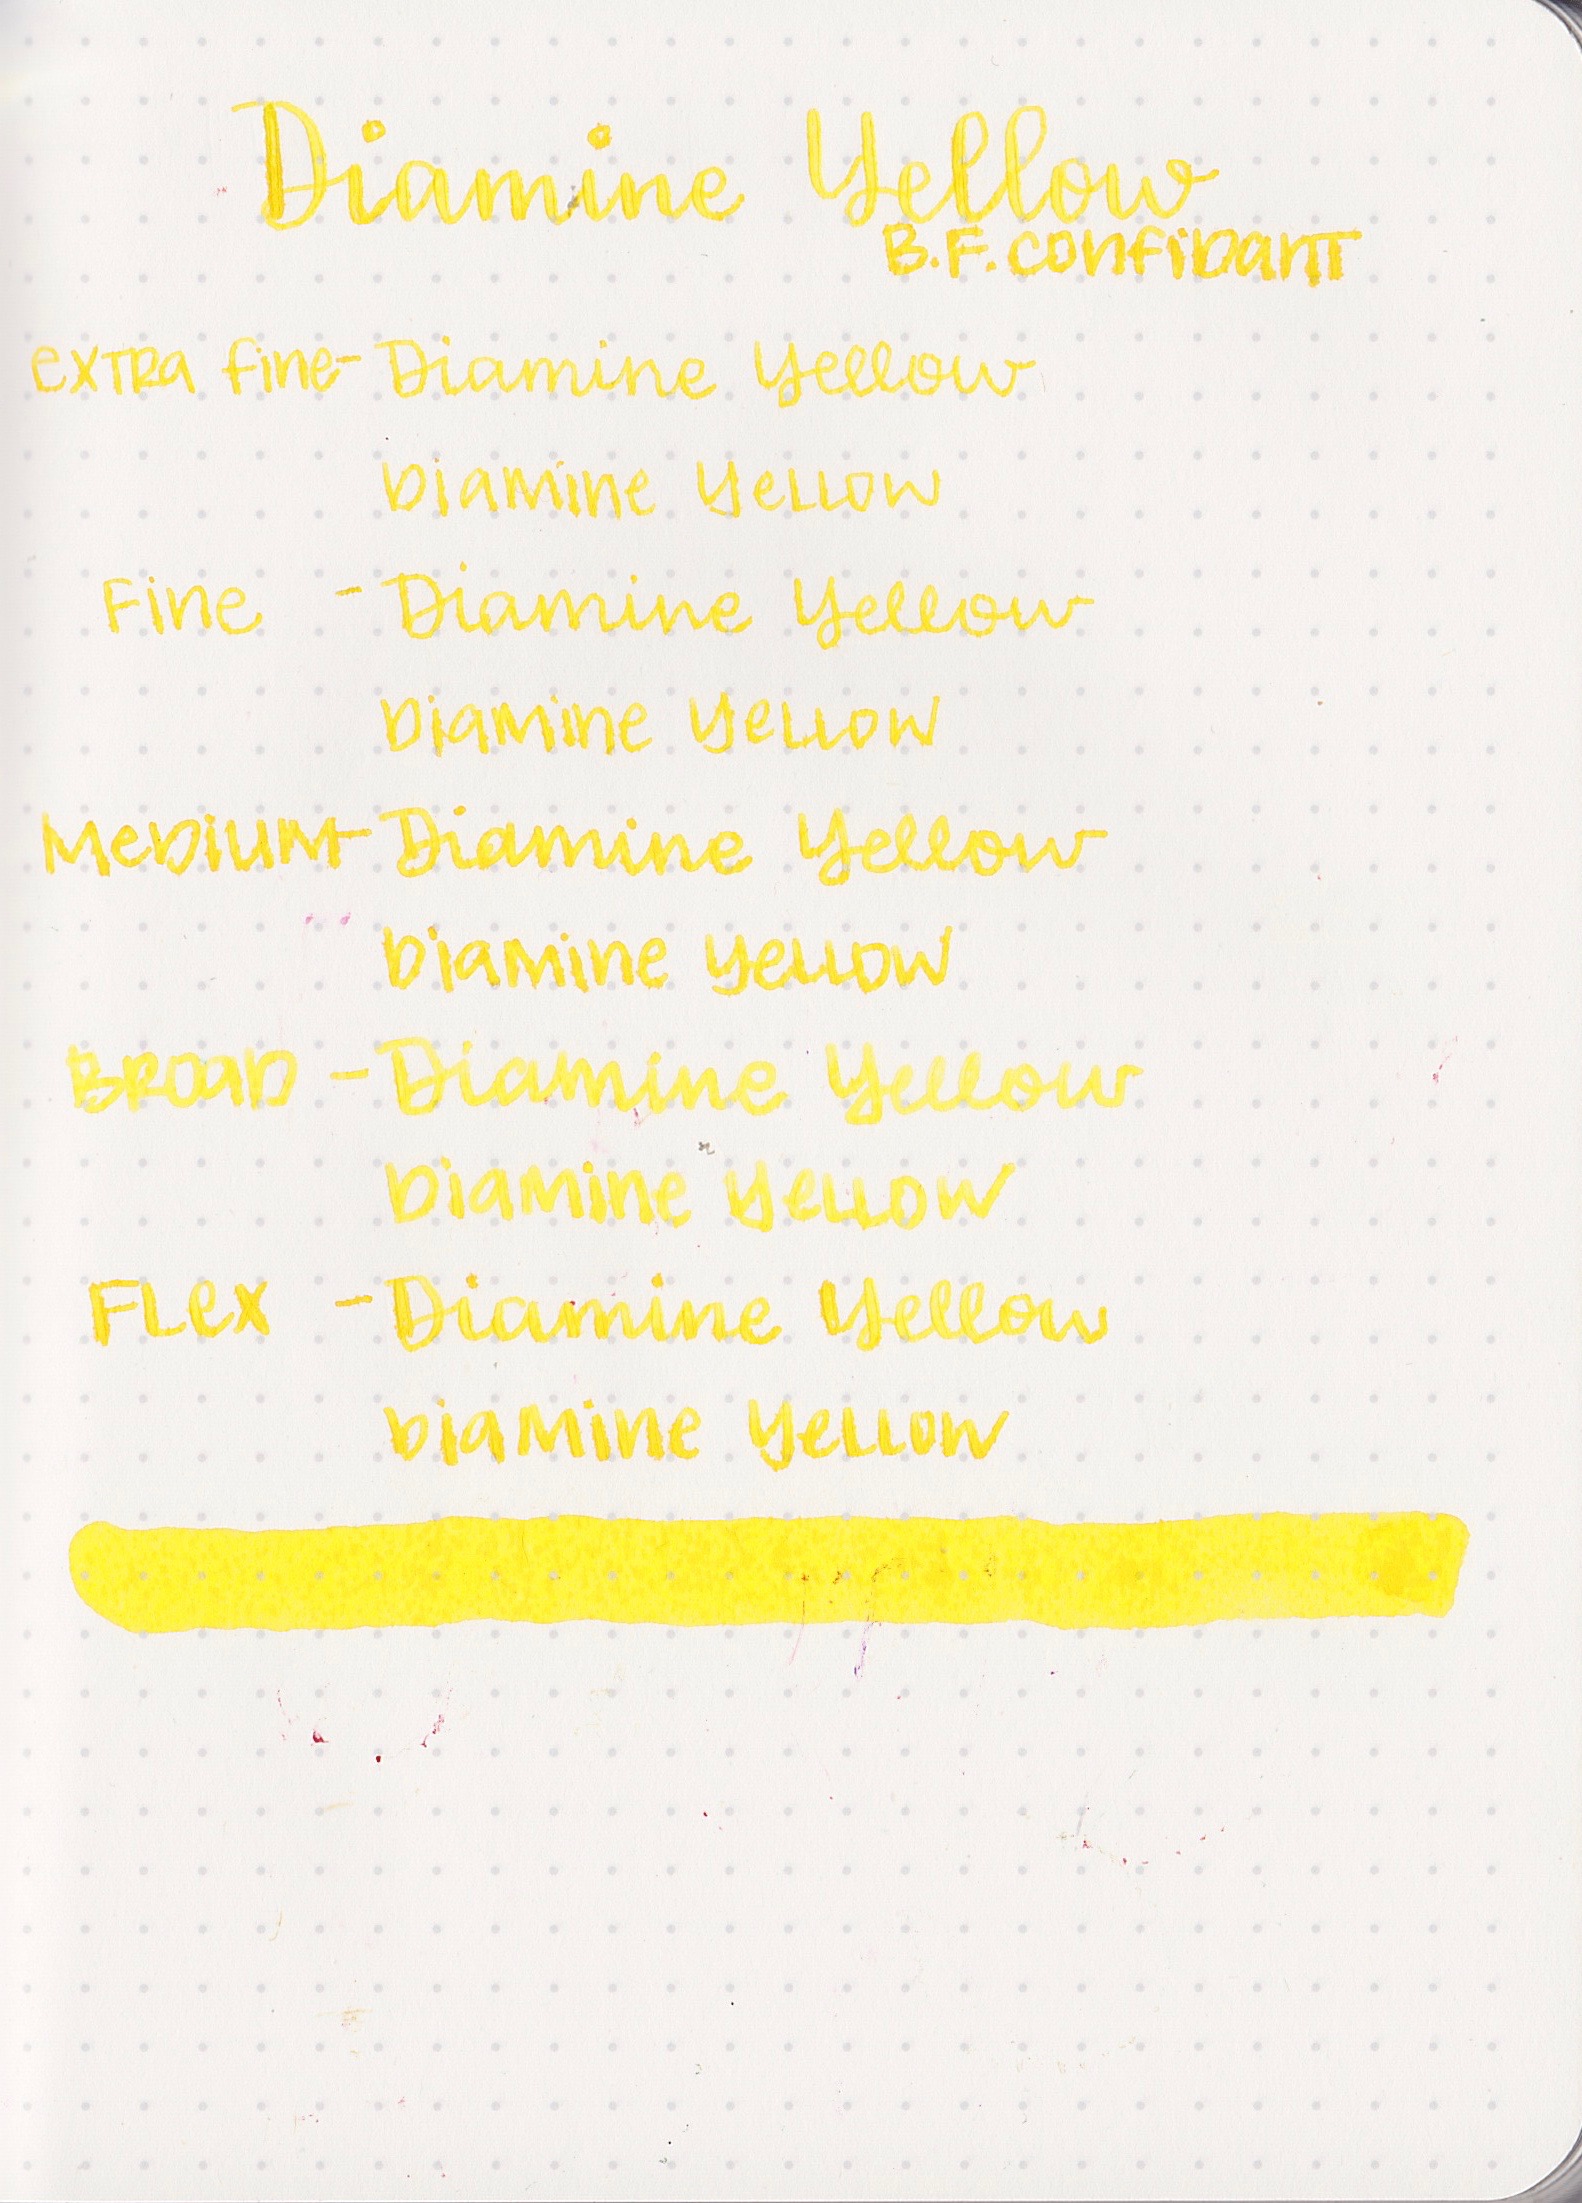 Diamine Yellow
B.F. Confidant
Extra Fine - Diamine Yellow
Diamine Yellow
Fine - Diamine Yellow
Diamine Yellow
Medium - Diamine Yellow
Diamine Yellow
Broad - Diamine Yellow
Diamine Yellow
Flex - Diamine Yellow
Diamine Yellow